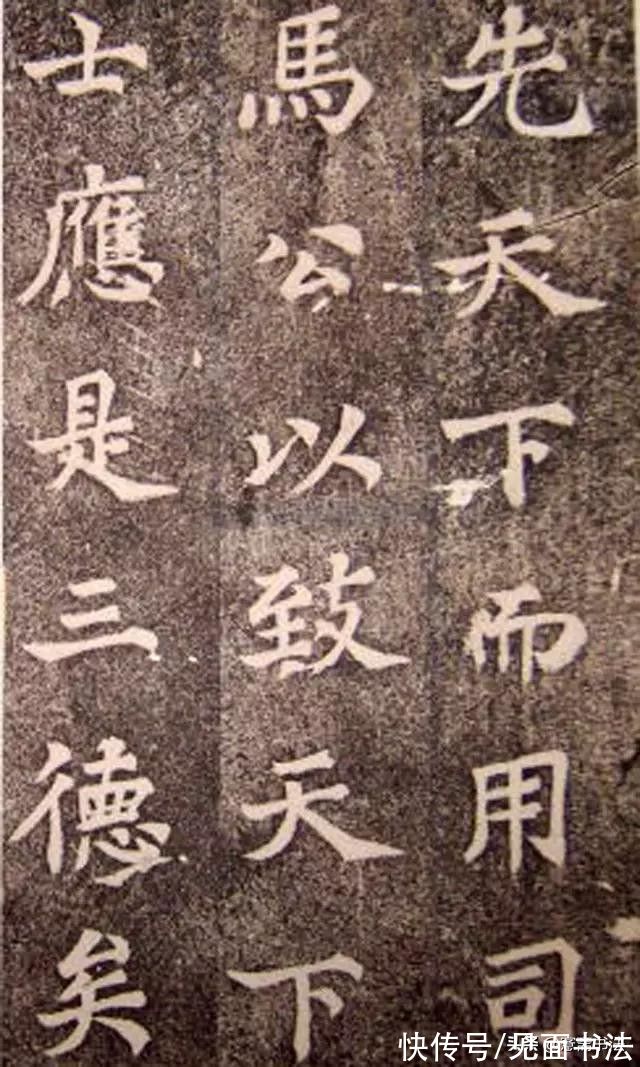 先天下而用司
馬公以致天下
士應是三德矣
快传号/见面书法